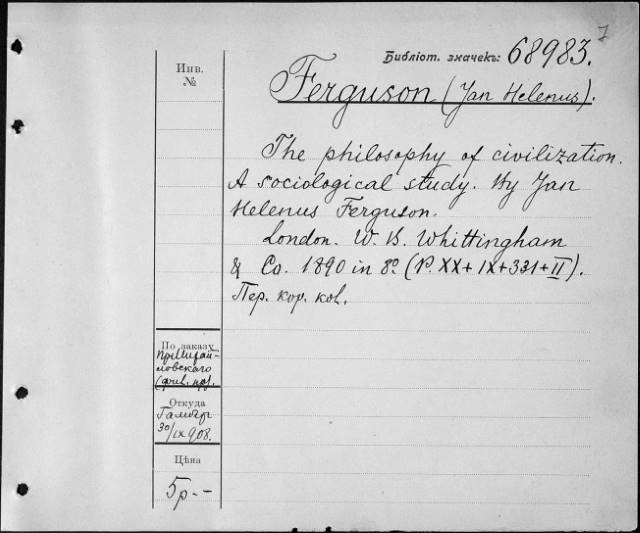 7
Библіот. значекъ: 68983.
Инв.
№
Ferguson (Jan Helenus).
The philosophy of civilization.
A sociological study. By Jan
Helenus Ferguson.
London. W. B. Whittingham
& Co. 1890 in 8º (P. XX+IX+331+II).
Пер. кор. ков.
По заказу
ловскаго
Откуда
30/IX 908.
Цѣна
5р.--